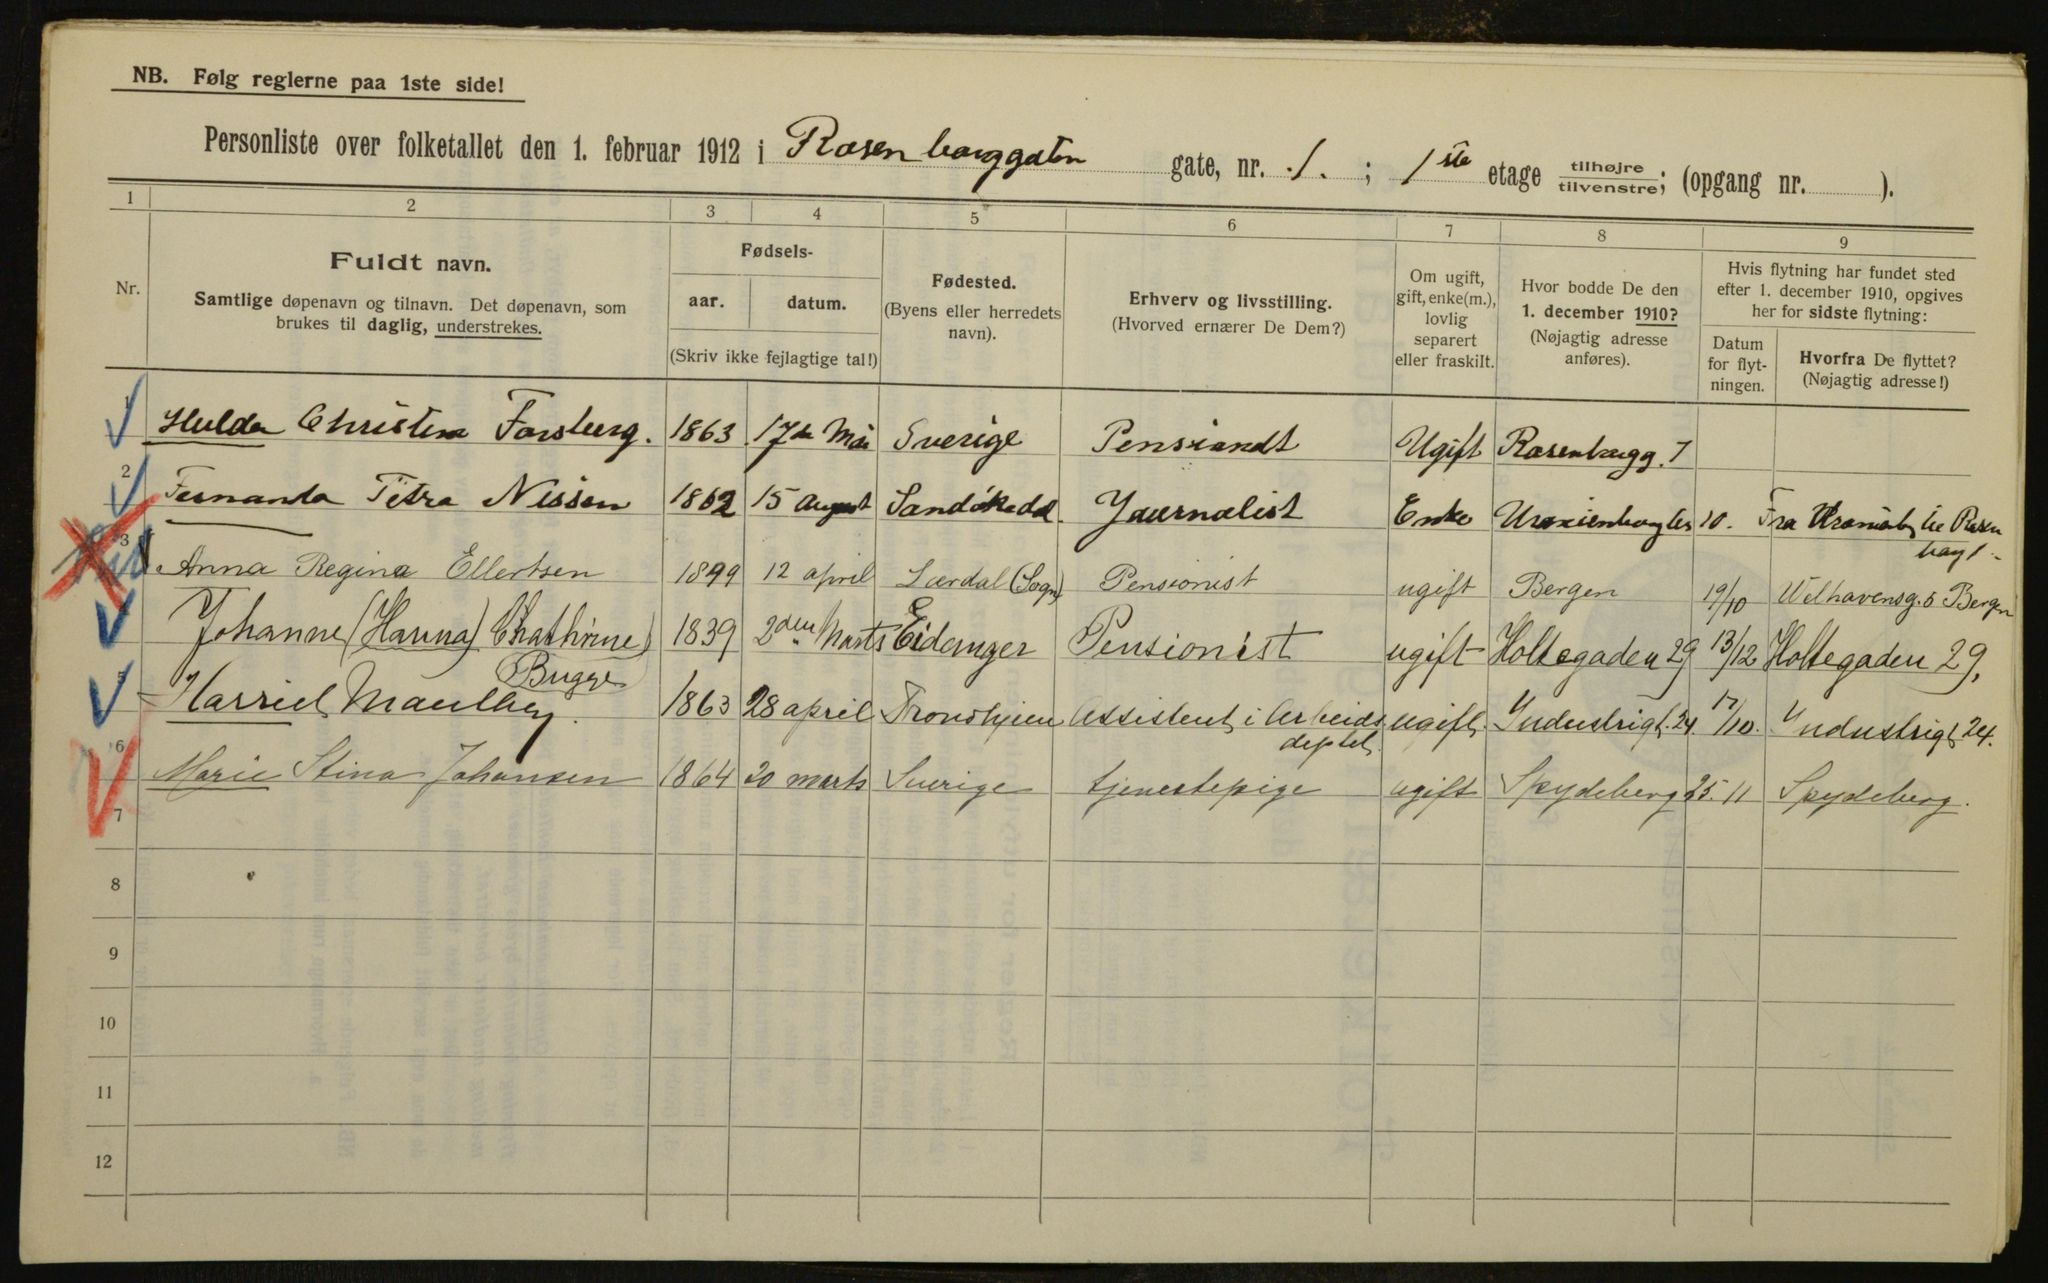 NB. Følg reglerne paa 1ste side!
Personliste over folketallet den 1. februar 1912 i Rosenborggaten gate, nr. 1. ; 1ste etage tilhøjre tilvenstre; (opgang nr. ).
1 2 3 4 5 6 7 8 9
Nr.
Fuldt navn.
Samtlige døpenavn og tilnavn. Det døpenavn, som
brukes til daglig, understrekes.
Fødsels-
aar. datum.
(Skriv ikke fejlagtige tal!)
Fødested.
(Byens eller herredets
navn).
Erhverv og livsstilling.
(Hvorved ernærer De Dem?)
Om ugift,
gift, enke(m.),
lovlig
separert
eller fraskilt.
Hvor bodde De den
1. december 1910?
(Nøjagtig adresse
anføres).
Hvis flytning har fundet sted
efter 1. december 1910, opgives
her for sidste flytning:
Datum
for flyt-
ningen.
Hvorfra De flyttet?
(Nøjagtig adresse!)
1 Hulda Christina Forsberg. 1863 17de Mai Sverige Pensiondt Ugift Rosenborgg. 7
2 Fernanda Petra Nissen 1862 15 August Sandökedal Journalist Enke 10. Fra til Rosen
borg 1
3 Anna Regina Ellertsen 1899 12 april Lærdal (Sogn) Pensionist ugift Bergen 19/10 Welhavensg. 5 Bergen
Johanne (Hanna) Chathrine 1839 2den Marts Eidanger Pensionist ugift Holtegaden 29 13/12 Holtegaden 29,
Bugge
5 Harriet Maulbey. 1863 28 april Trondhjem Assistent i Arbeids ugift. Industrigt. 24. 17/10. Industrigt 24.
deptet.
6 Marie Stina Johansen 1864 20 marts Sverige tjenestepige ugift Spydeberg 25. 11 Spydeberg.
7
8
9
10
11
12